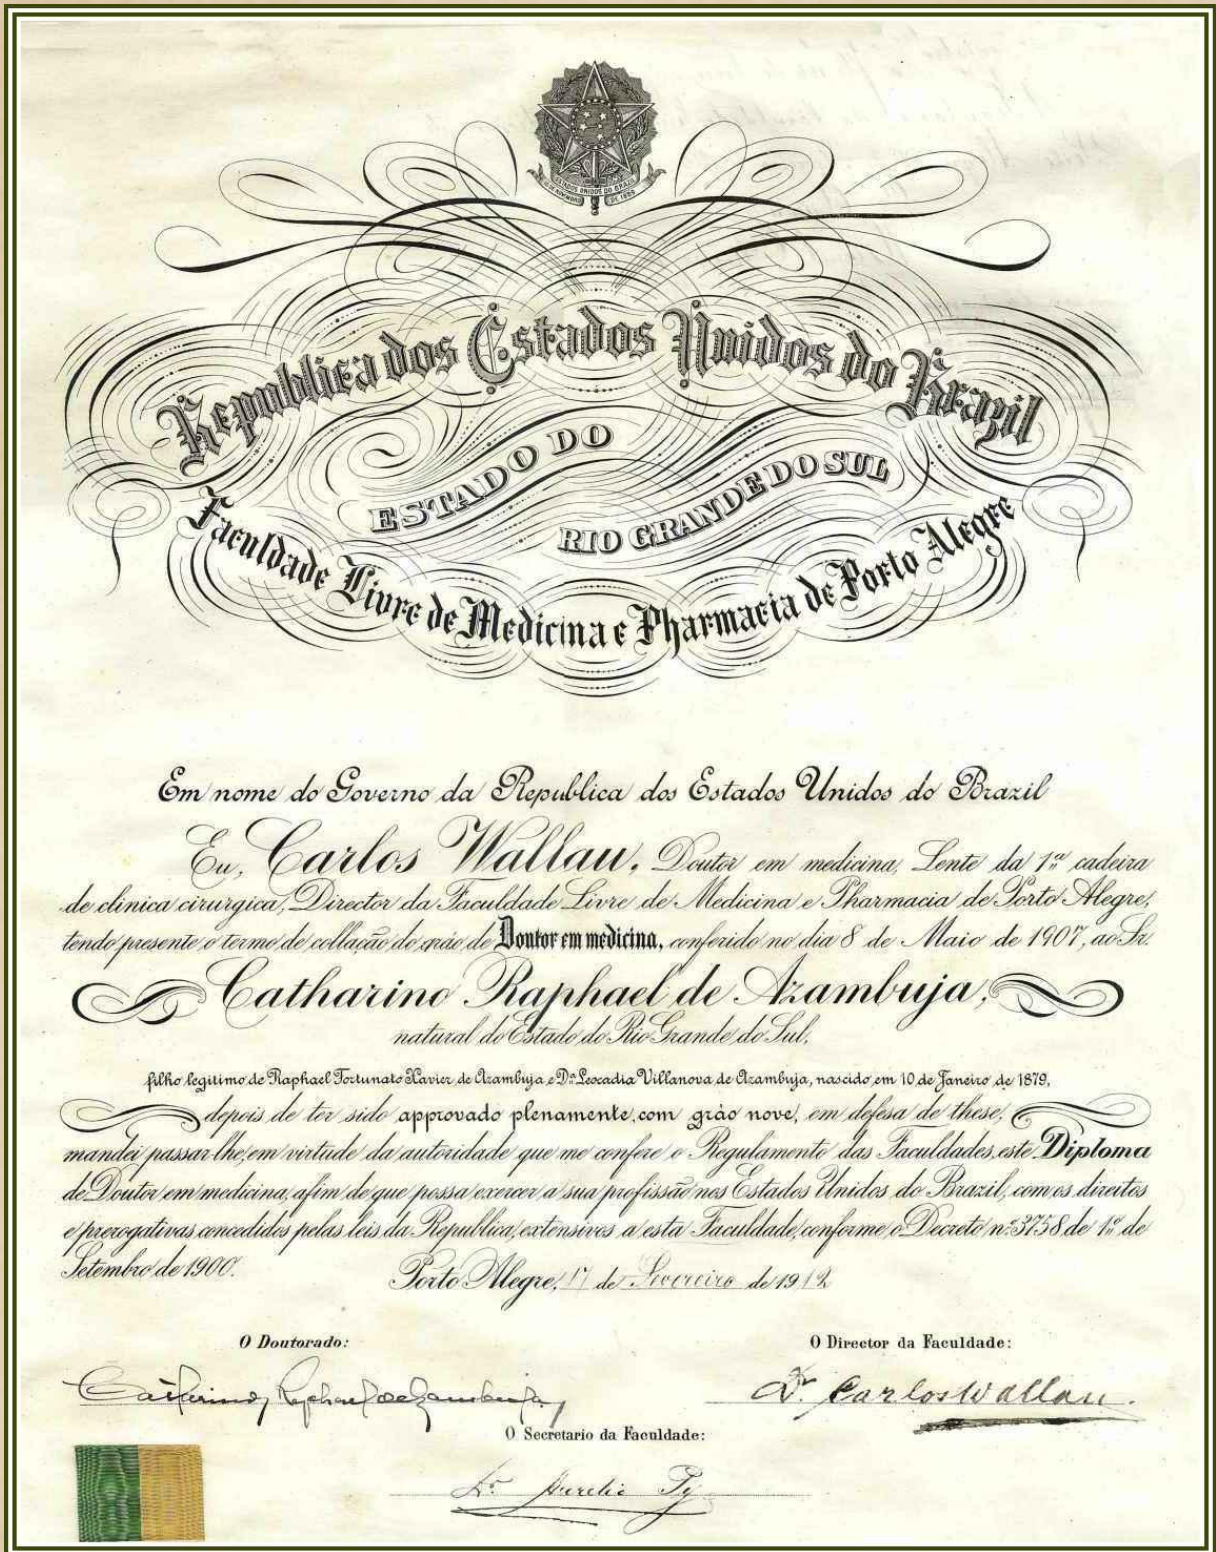 ESTADOS UNIDOS DO BRASIL
15 DE NOVEMBRO DE 1889
Republica dos Estados Unidos do Brazil
ESTADO DO
RIO GRANDE DO SUL
Faculdade Livre de Medicina e Pharmacia de Porto Alegre
Em nome do Governo da Republica dos Estados Unidos do Brazil
Eu, Carlos Wallau, Doutor em medicina, Lente da 1ª cadeira
de clinica cirurgica, Director da Faculdade Livre de Medicina e Pharmacia de Porto Alegre,
tendo presente o termo de collação do gráo de Doutor em medicina, conferido no dia 8 de Maio de 1907, ao Sr.
Catharino Raphael de Azambuja,
natural do Estado do Rio Grande do Sul,
filho legitimo de Raphael Fortunato Xavier de Azambuja e Dª Leocadia Villanova de Azambuja, nascido em 10 de Janeiro de 1879,
depois de ter sido approvado plenamente, com gráo nove, em defesa de these,
mandei passar-lhe, em virtude da autoridade que me confere o Regulamento das Faculdades, este Diploma
de Doutor em medicina, afim de que possa exercer a sua profissão nos Estados Unidos do Brazil, com os direitos
e prerogativas concedidos pelas leis da Republica, extensivos a esta Faculdade, conforme o Decreto nº 3758 de 1º de
Setembro de 1900.
Porto Alegre, 17 de Fevereiro de 1912
O Doutorado:
O Director da Faculdade:
Catharino Raphael de Azambuja
Dr. Carlos Wallau.
O Secretario da Faculdade:
Dr. Aurelio Py